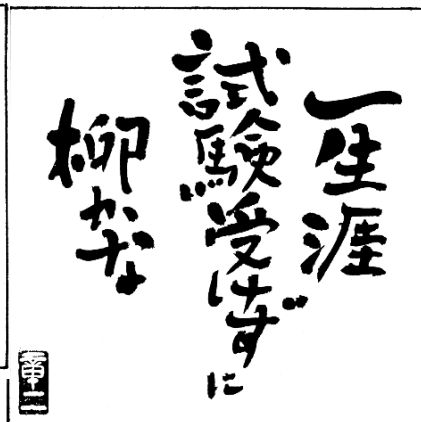 一生涯
試験受けずに
柳かな